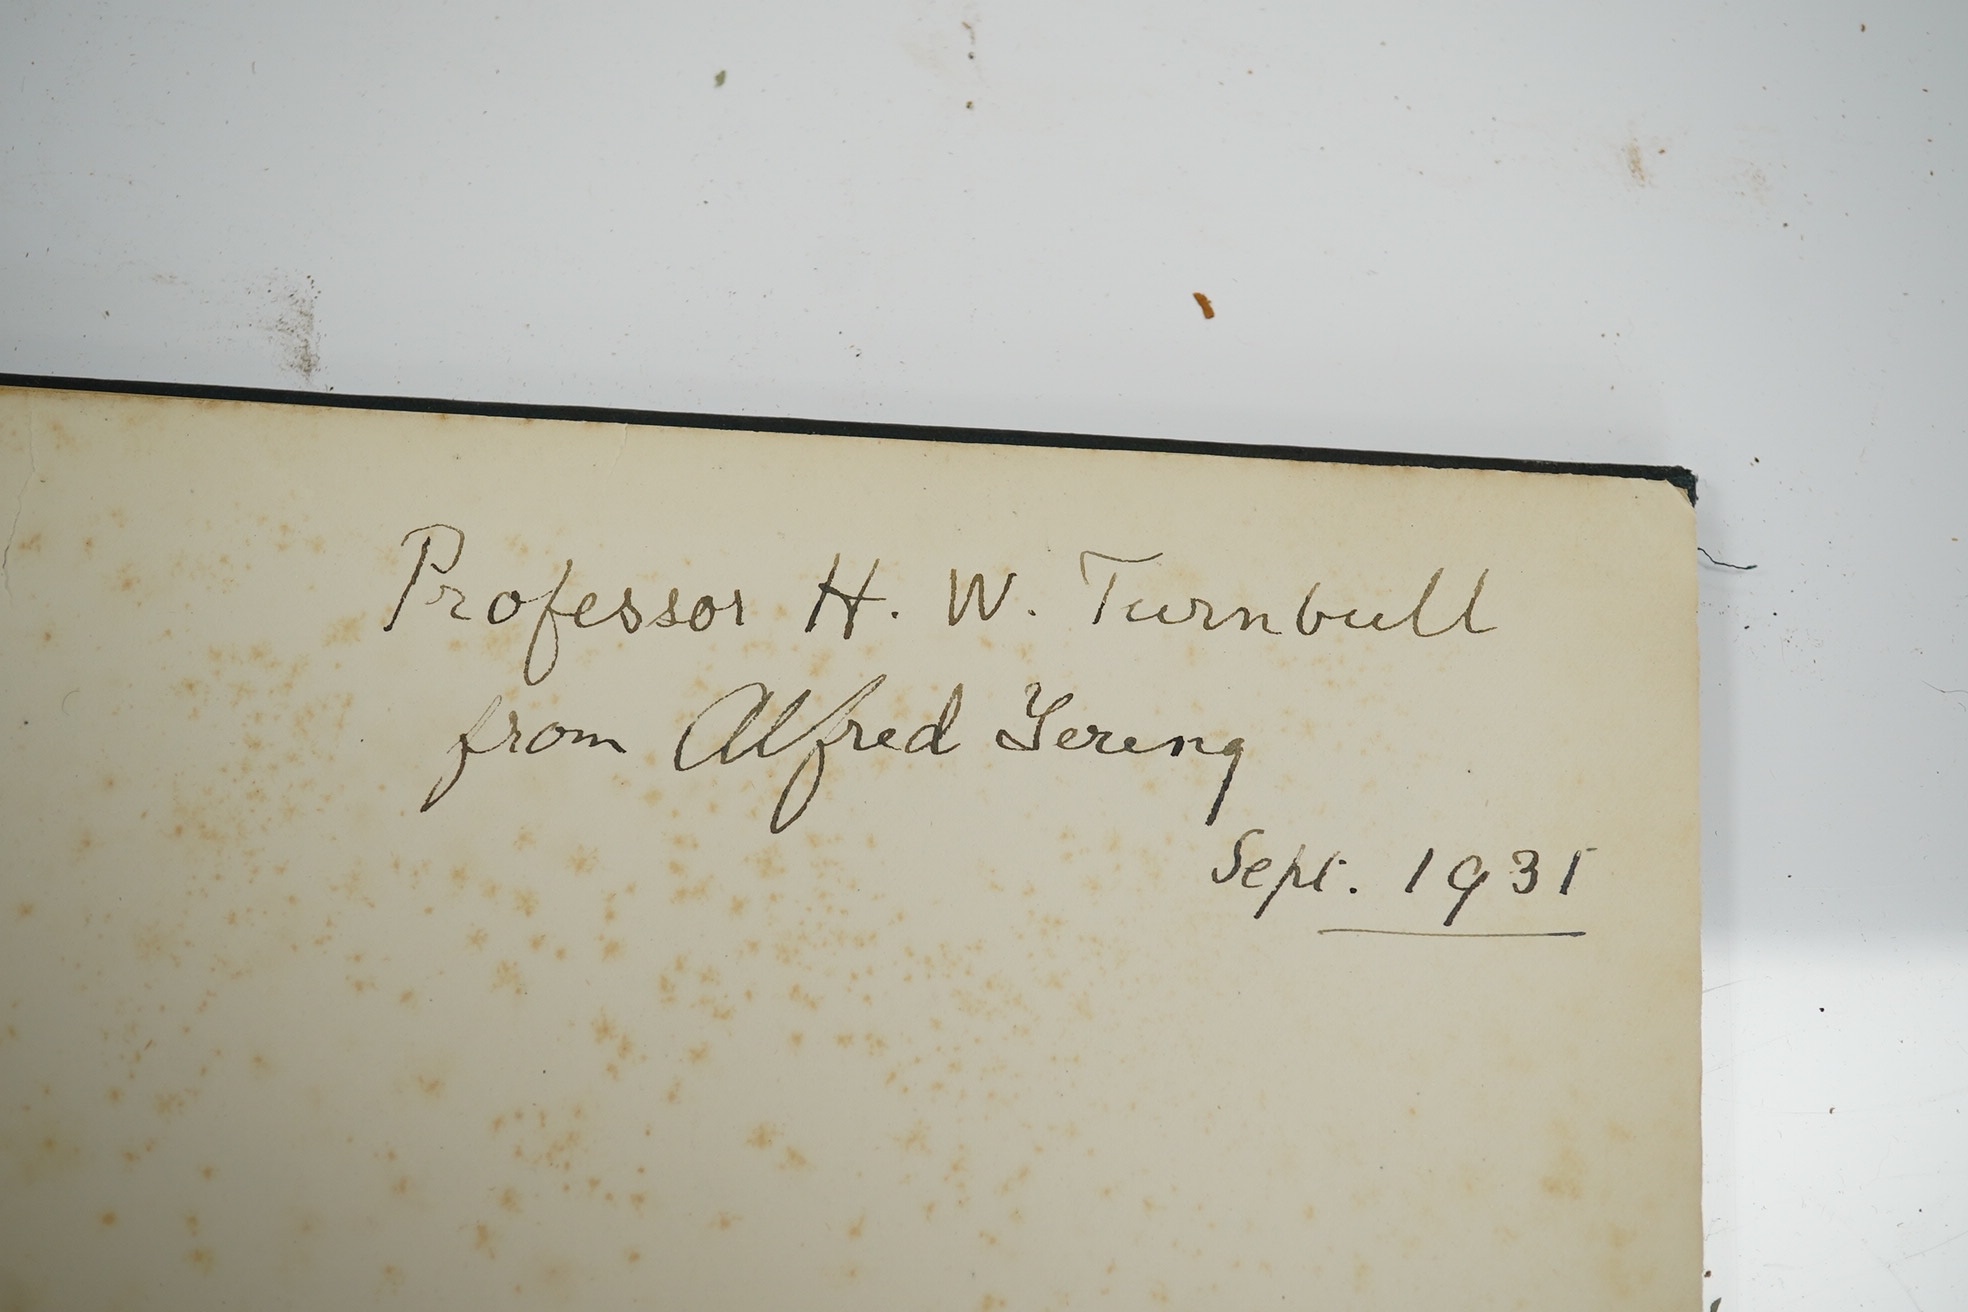 Professor H. W. Turnbull
from Alfred
Sept. 1931